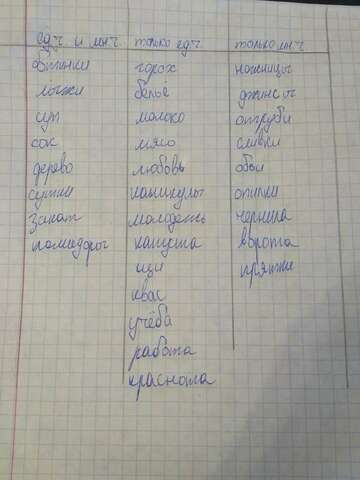 ед ч и мн ч только ед ч только мн ч
ботинки горох ножницы
лыжи бельё джинсы
суп молоко отруби
сок мясо сливки
дерево любовь обои
сутки каникулы опилки
закат молодежь чернила
помидоры капуста ворота
щи прятки
квас
учёба
работа
краснота